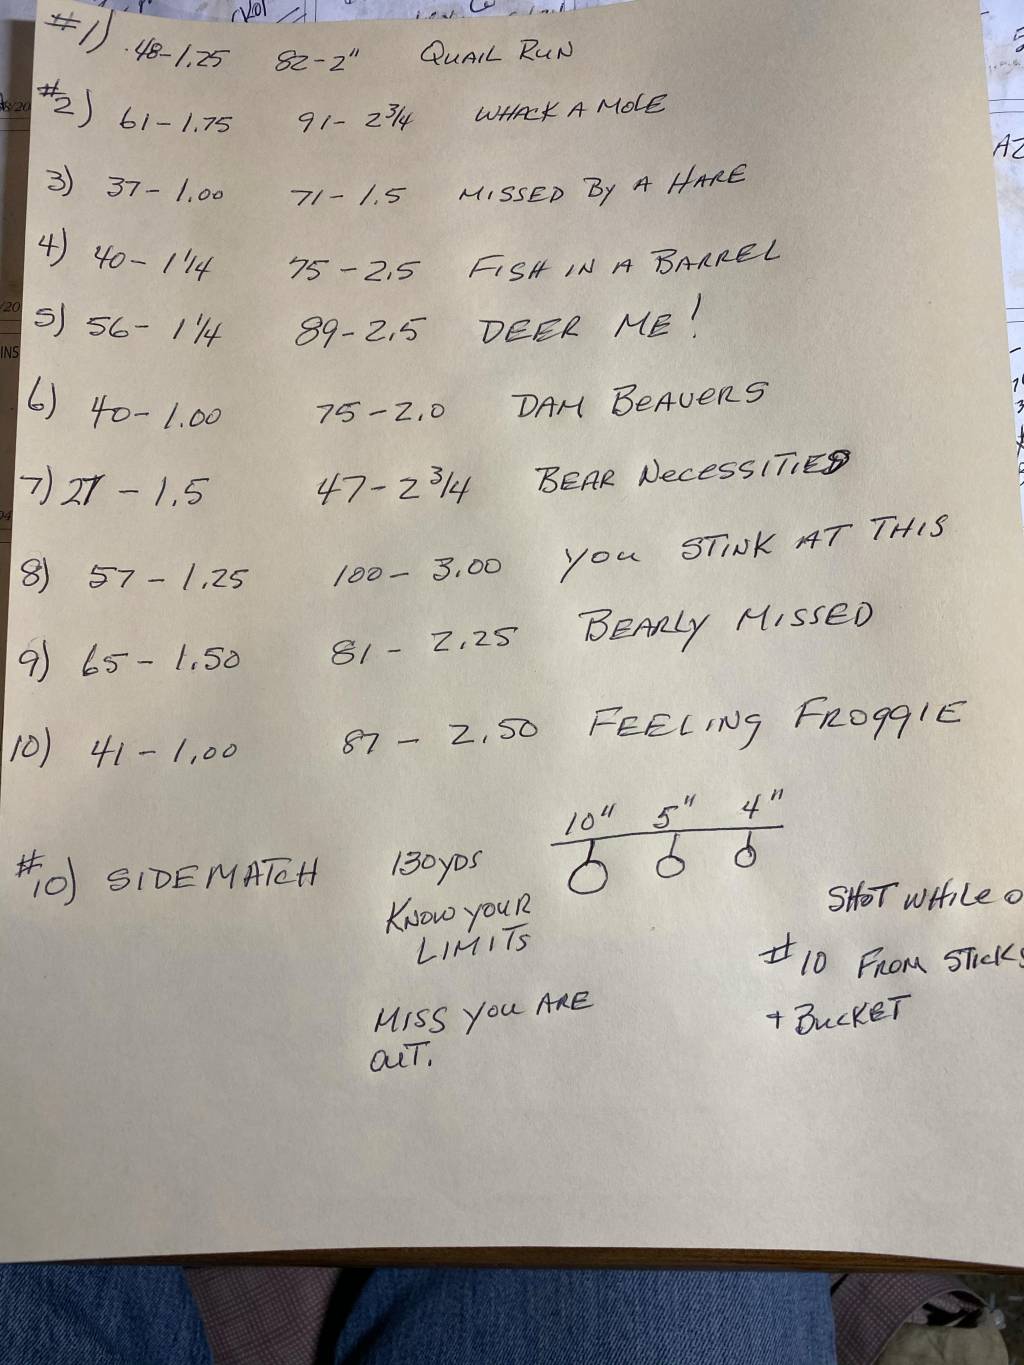 #1) 48-1.25 82-2" QUAIL RUN
#2) 61-1.75 91-2 3/4 WHACK A MOLE
3) 37-1.00 71-1.5 MISSED By A HARE
4) 40-1 1/4 75-2.5 FISH IN A BARREL
5) 56-1 1/4 89-2.5 DEER ME!
6) 40-1.00 75-2.0 DAM BEAVERS
7) 27-1.5 47-2 3/4 BEAR NECESSITIES
8) 57-1.25 100-3.00 you STINK AT THIS
9) 65-1.50 81-2.25 BEARLY MISSED
10) 41-1.00 87-2.50 FEELING FROGGIE
10" 5" 4"
#10) SIDEMATCH 130 YDS
KNOW YOUR
LIMITS
MISS YOU ARE
OUT.
SHOT WHILE
#10 FROM STICKS
+ BUCKET